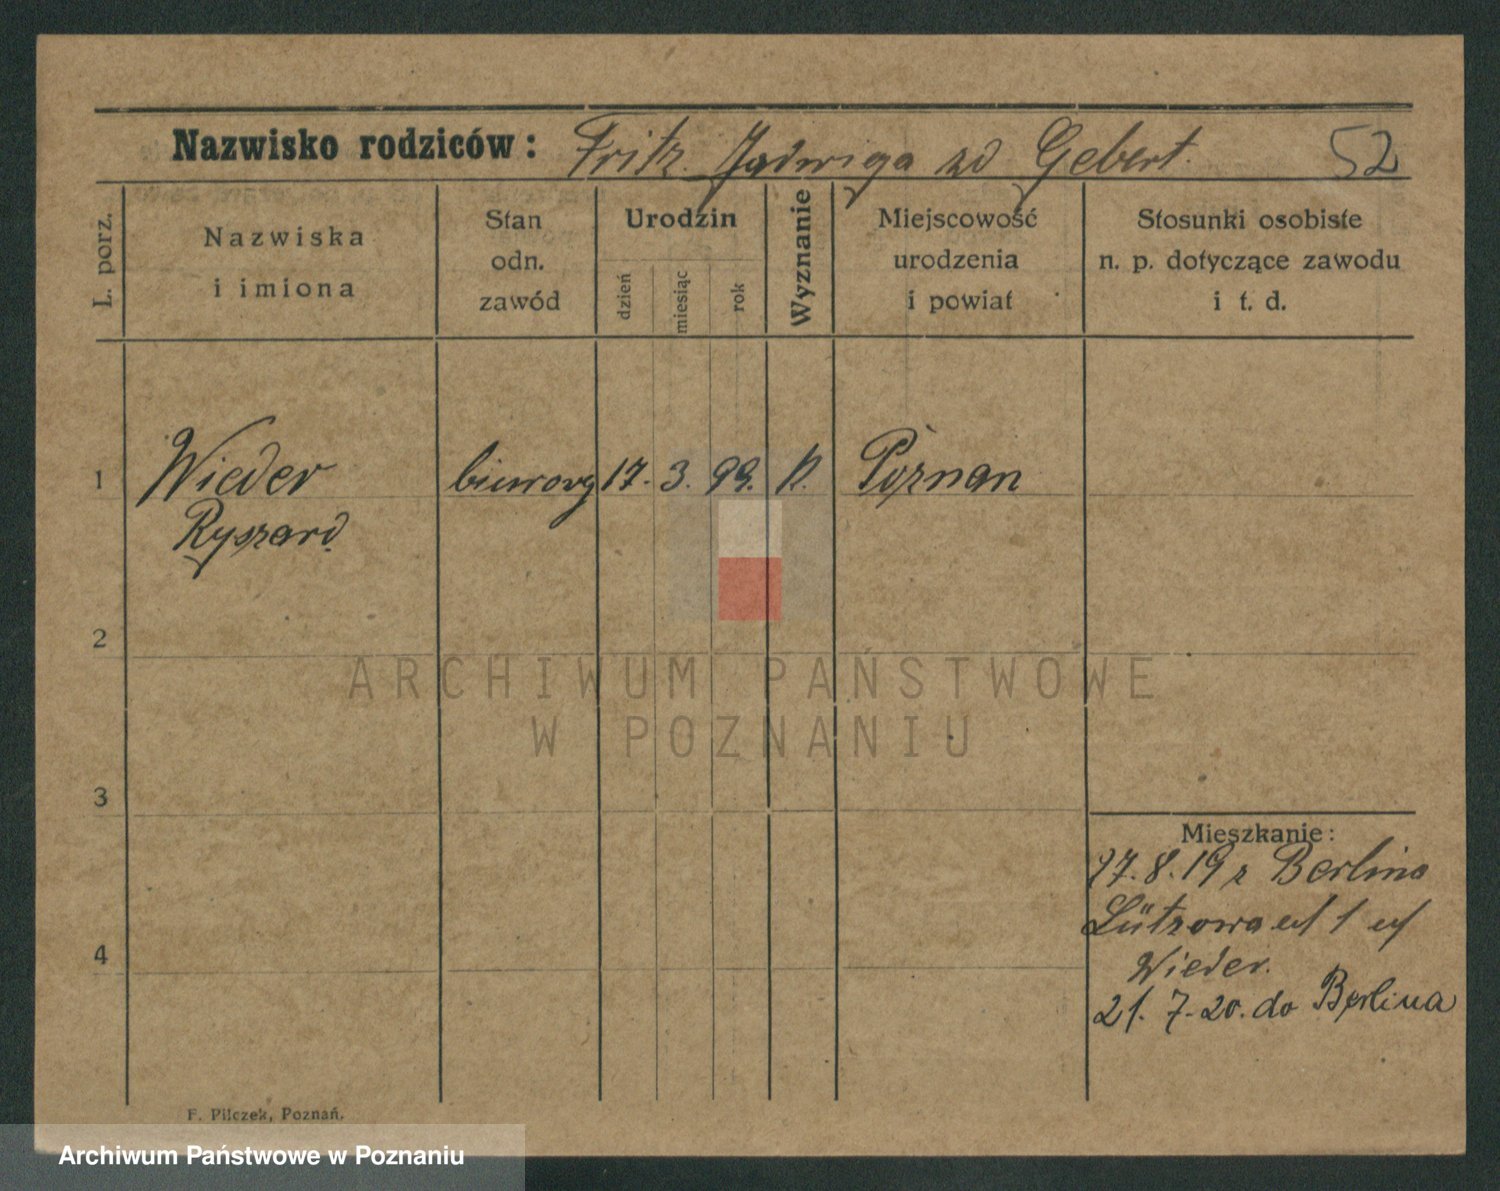 Nazwisko rodziców: Fritz. Jadwiga zd Gebert. 52
L. porz.
Nazwiska
i imiona
Stan
odn.
zawód
Urodzin
dzień
miesiąc
rok
Wyznanie
Miejscowość
urodzenia
i powiat
Stosunki osobiste
n. p. dotyczące zawodu
i t. d.
1 Wieder biurowy 17. 3. 99. k. Poznan
Ryszard
2
3
4
Mieszkanie:
17.8.19 z Berlina
Lützowa 1
Wieder.
21. 7.20. do Berlina
F. Pilczek, Poznań.
ARCHIWUM PAŃSTWOWE
W POZNANIU
Archiwum Państwowe w Poznaniu